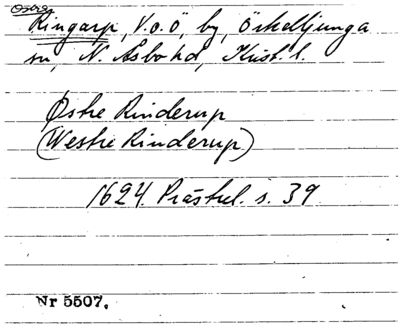 Östra
Ringarp, V. o. Ö, by, Örkelljunga
sn, N. Åsbo hd, Krist. l.
Østre Rinderup
(Westre Rinderup)
1624. Prästrel. s. 39
Nr 5507.